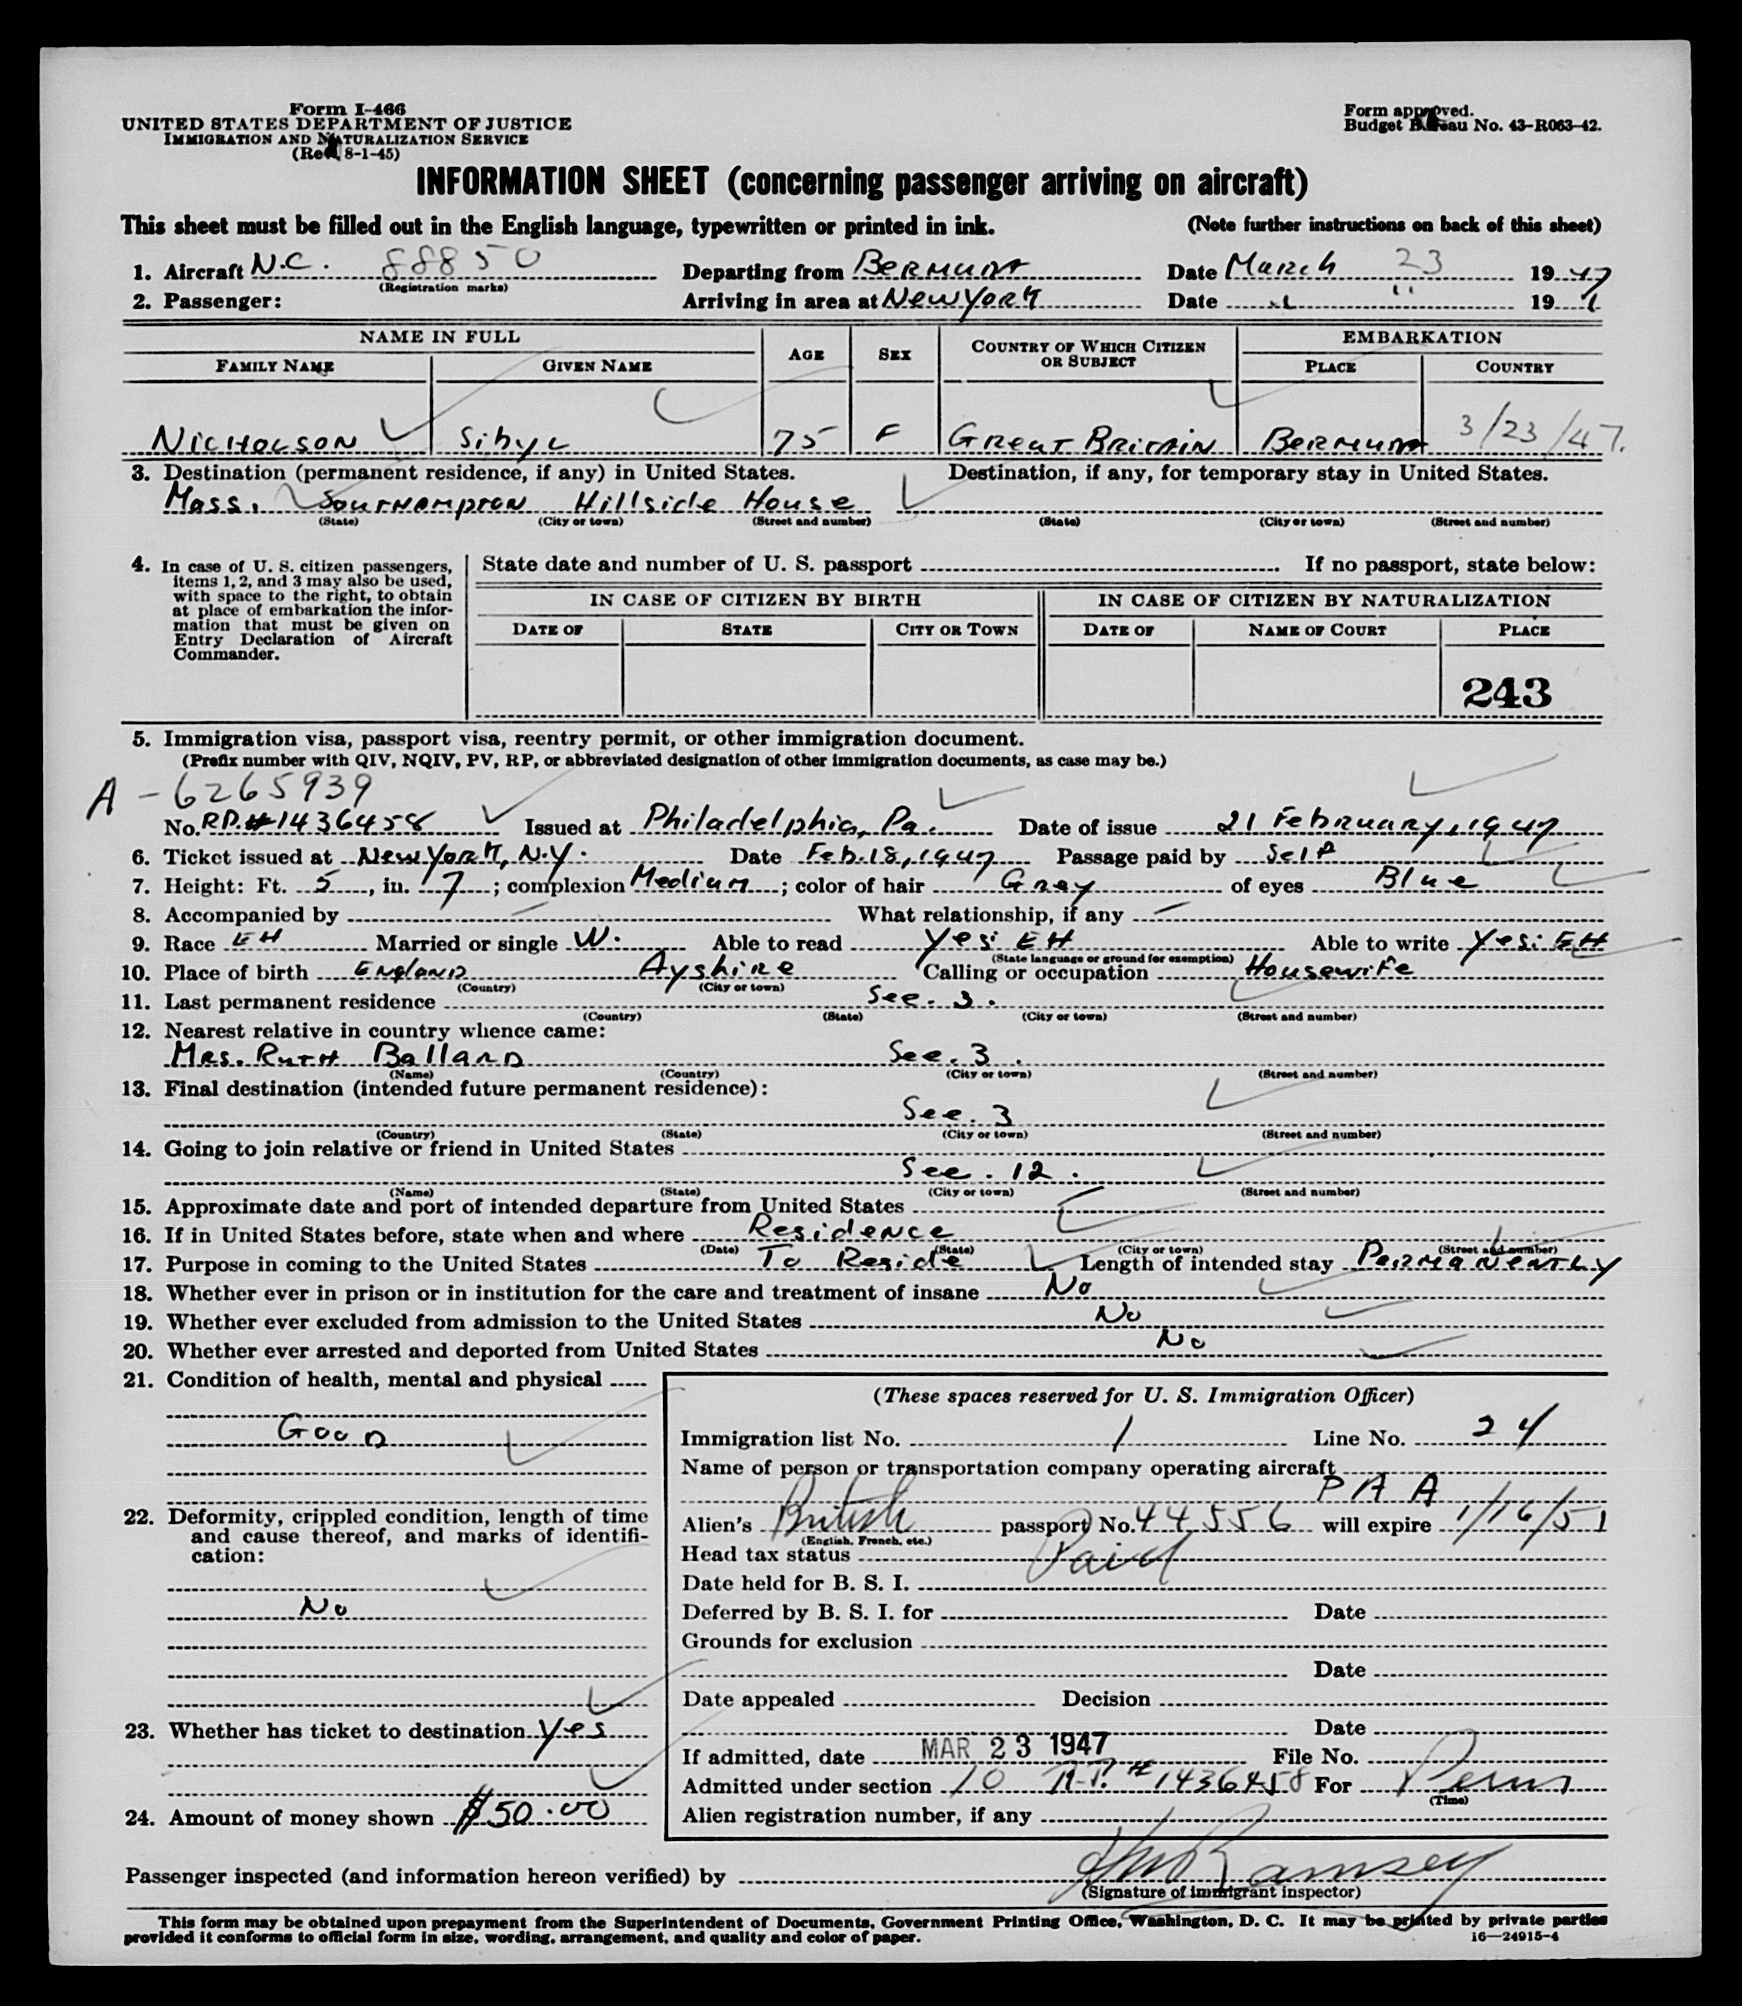 Form I-466
UNITED STATES DEPARTMENT OF JUSTICE
IMMIGRATION AND NATURALIZATION SERVICE
(Rev. 8-1-45)
Form approved.
Budget Bureau No. 43-R063-42.
INFORMATION SHEET (concerning passenger arriving on aircraft)
This sheet must be filled out in the English language, typewritten or printed in ink. (Note further instructions on back of this sheet)
1. Aircraft N.C. 88850 Departing from BERMUDA Date MARCH 23 1947
(Registration marks)
2. Passenger: Arriving in area at New YORK Date " " 19
NAME IN FULL AGE SEX COUNTRY OF WHICH CITIZEN OR SUBJECT EMBARKATION
FAMILY NAME GIVEN NAME PLACE COUNTRY
NICHOLSON Sibyl 75 F GREAT BRITAIN BERMUDA 3/23/47.
3. Destination (permanent residence, if any) in United States. Destination, if any, for temporary stay in United States.
Mass. SOUTHAMPTON Hillside House
(State) (City or town) (Street and number) (State) (City or town) (Street and number)
4. In case of U. S. citizen passengers, items 1, 2, and 3 may also be used, with space to the right, to obtain at place of embarkation the information that must be given on Entry Declaration of Aircraft Commander.
State date and number of U. S. passport If no passport, state below:
IN CASE OF CITIZEN BY BIRTH IN CASE OF CITIZEN BY NATURALIZATION
DATE OF STATE CITY OR TOWN DATE OF NAME OF COURT PLACE
243
5. Immigration visa, passport visa, reentry permit, or other immigration document.
(Prefix number with QIV, NQIV, PV, RP, or abbreviated designation of other immigration documents, as case may be.)
A - 6265939
No. RP.#1436458 Issued at Philadelphia, Pa. Date of issue 21 February, 1947
6. Ticket issued at New York, N.Y. Date Feb. 18, 1947 Passage paid by Self
7. Height: Ft. 5, in. 7; complexion Medium; color of hair Gray of eyes Blue
8. Accompanied by — What relationship, if any —
9. Race EH Married or single W. Able to read Yes: EH Able to write Yes: EH
(State language or ground for exemption)
10. Place of birth ENGLAND Ayshire Calling or occupation Housewife
(Country) (City or town)
11. Last permanent residence See. 3.
(Country) (State) (City or town) (Street and number)
12. Nearest relative in country whence came:
MRS. RUTH BALLARD See. 3.
(Name) (Country) (City or town) (Street and number)
13. Final destination (intended future permanent residence):
See. 3
(Country) (State) (City or town) (Street and number)
14. Going to join relative or friend in United States
See. 12.
(Name) (State) (City or town) (Street and number)
15. Approximate date and port of intended departure from United States
16. If in United States before, state when and where Residence
(Date) (State) (City or town) (Street and number)
17. Purpose in coming to the United States To Reside Length of intended stay PERMANENTLY
18. Whether ever in prison or in institution for the care and treatment of insane No
19. Whether ever excluded from admission to the United States No
20. Whether ever arrested and deported from United States No
21. Condition of health, mental and physical
GOOD
22. Deformity, crippled condition, length of time and cause thereof, and marks of identification:
No
23. Whether has ticket to destination Yes
24. Amount of money shown $50.00
(These spaces reserved for U. S. Immigration Officer)
Immigration list No. 1 Line No. 24
Name of person or transportation company operating aircraft
P A A
Alien's British passport No. 44556 will expire 1/16/51
(English, French, etc.)
Head tax status Paid
Date held for B. S. I.
Deferred by B. S. I. for Date
Grounds for exclusion
Date
Date appealed Decision
Date
If admitted, date MAR 23 1947 File No.
Admitted under section 10 R.P. # 1436458 For Perm
(Time)
Alien registration number, if any
Passenger inspected (and information hereon verified) by Ramsey
(Signature of immigrant inspector)
This form may be obtained upon prepayment from the Superintendent of Documents, Government Printing Office, Washington, D. C. It may be printed by private parties
provided it conforms to official form in size, wording, arrangement, and quality and color of paper.
16—24915-4